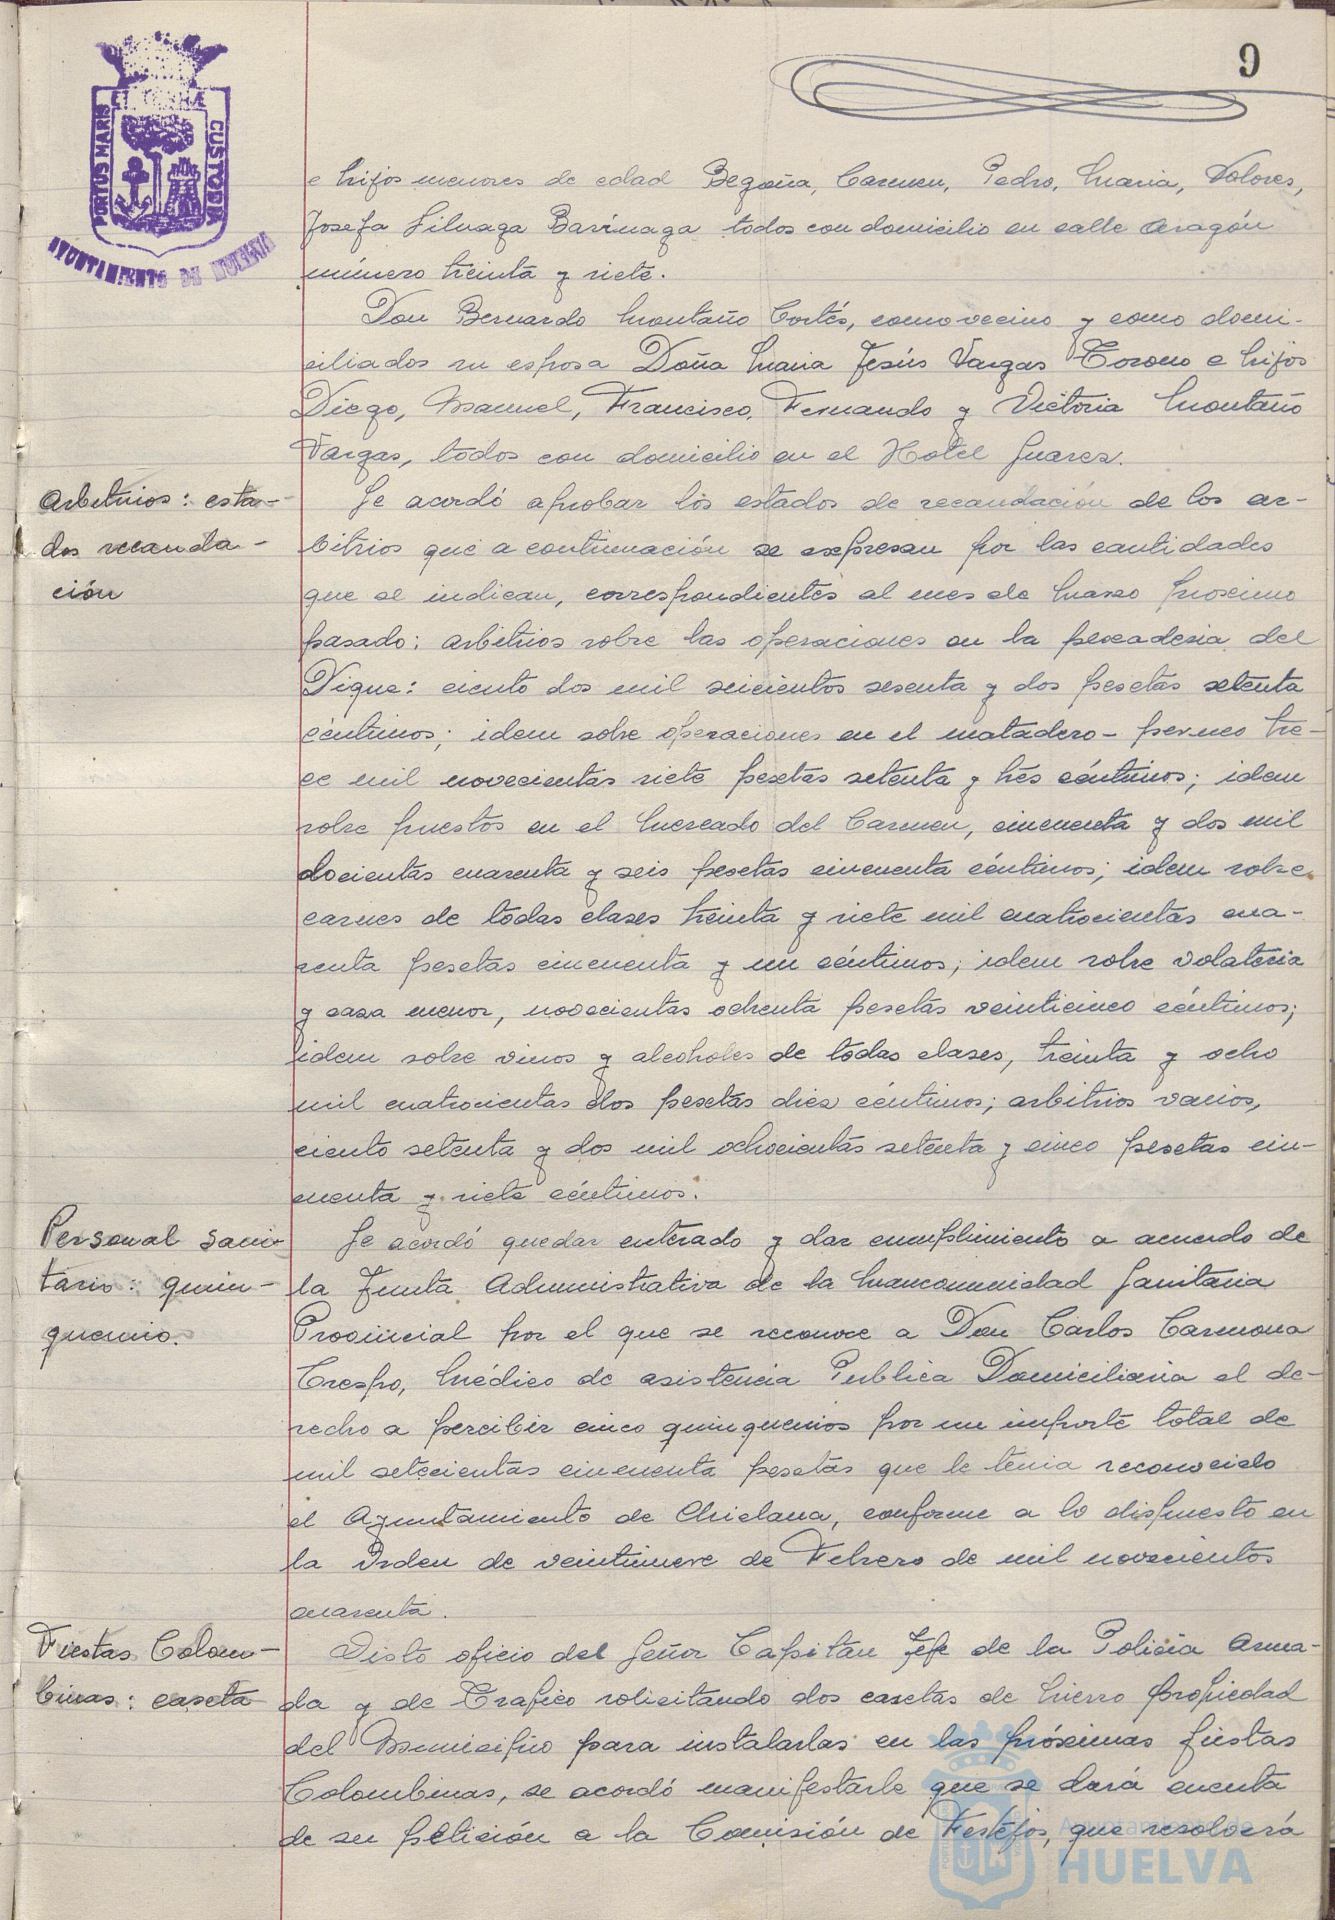 9
PORTUS MARIS
CUSTODIA
AYUNTAMIENTO DE HUELVA
e hijos menores de edad Begoña, Carmen, Pedro, Maria, Dolores,
Josefa Siluaga Barinaga todos con domicilio en calle Aragón
número treinta y siete.
Don Bernardo Montaño Cortés, como vecino y como domi-
ciliados su esposa Doña Maria Jesús Vargas Toronо e hijos
Diego, Manuel, Francisco, Fernando y Victoria Montaño
Vargas, todos con domicilio en el Hotel Suarez.
Arbitrios: esta-
dos recauda-
ción
Se acordó aprobar los estados de recaudación de los ar-
bitrios que a continuación se expresan por las cantidades
que se indican, correspondientes al mes de Marzo proximo
pasado: arbitrios sobre las operaciones en la pescaderia del
Dique: ciento dos mil seicientos sesenta y dos pesetas setenta
céntimos; idem sobre operaciones en el matadero-perneo tre-
ce mil novecientas siete pesetas setenta y trés céntimos; idem
sobre puestos en el Mercado del Carmen, cincuenta y dos mil
docientas cuarenta y seis pesetas cincuenta céntimos; idem sobre
carnes de todas clases treinta y siete mil cuatrocientas cua-
renta pesetas cincuenta y un céntimos; idem sobre volateria
y caza menor, novecientas ochenta pesetas veinticinco céntimos;
idem sobre vinos y alcoholes de todas clases, treinta y ocho
mil cuatrocientas dos pesetas diez céntimos; arbitrios varios,
ciento setenta y dos mil ochocientas setenta y cinco pesetas cin-
cuenta y siete céntimos.
Personal sani-
tario: quin-
quenio.
Se acordó quedar enterado y dar cumplimiento a acuerdo de
la Junta Administrativa de la Mancomunidad Sanitaria
Provincial por el que se reconoce a Don Carlos Carmona
Crespo, Médico de asistencia Publica Domiciliaria el de-
recho a percibir cinco quinquenios por un importe total de
mil setecientas cincuenta pesetas que le tenia reconocido
el Ayuntamiento de Chiclana, conforme a lo dispuesto en
la Orden de veintinueve de Febrero de mil novecientos
cuarenta.
Fiestas Colom-
binas: caseta
Visto oficio del Señor Capitán Jefe de la Policia Arma-
da y de Trafico solicitando dos casetas de hierro propiedad
del Municipio para instalarlas en las próximas fiestas
Colombinas, se acordó manifestarle que se dará cuenta
de su petición a la Comisión de Festejos, que resolverá
Ayuntamiento de
HUELVA